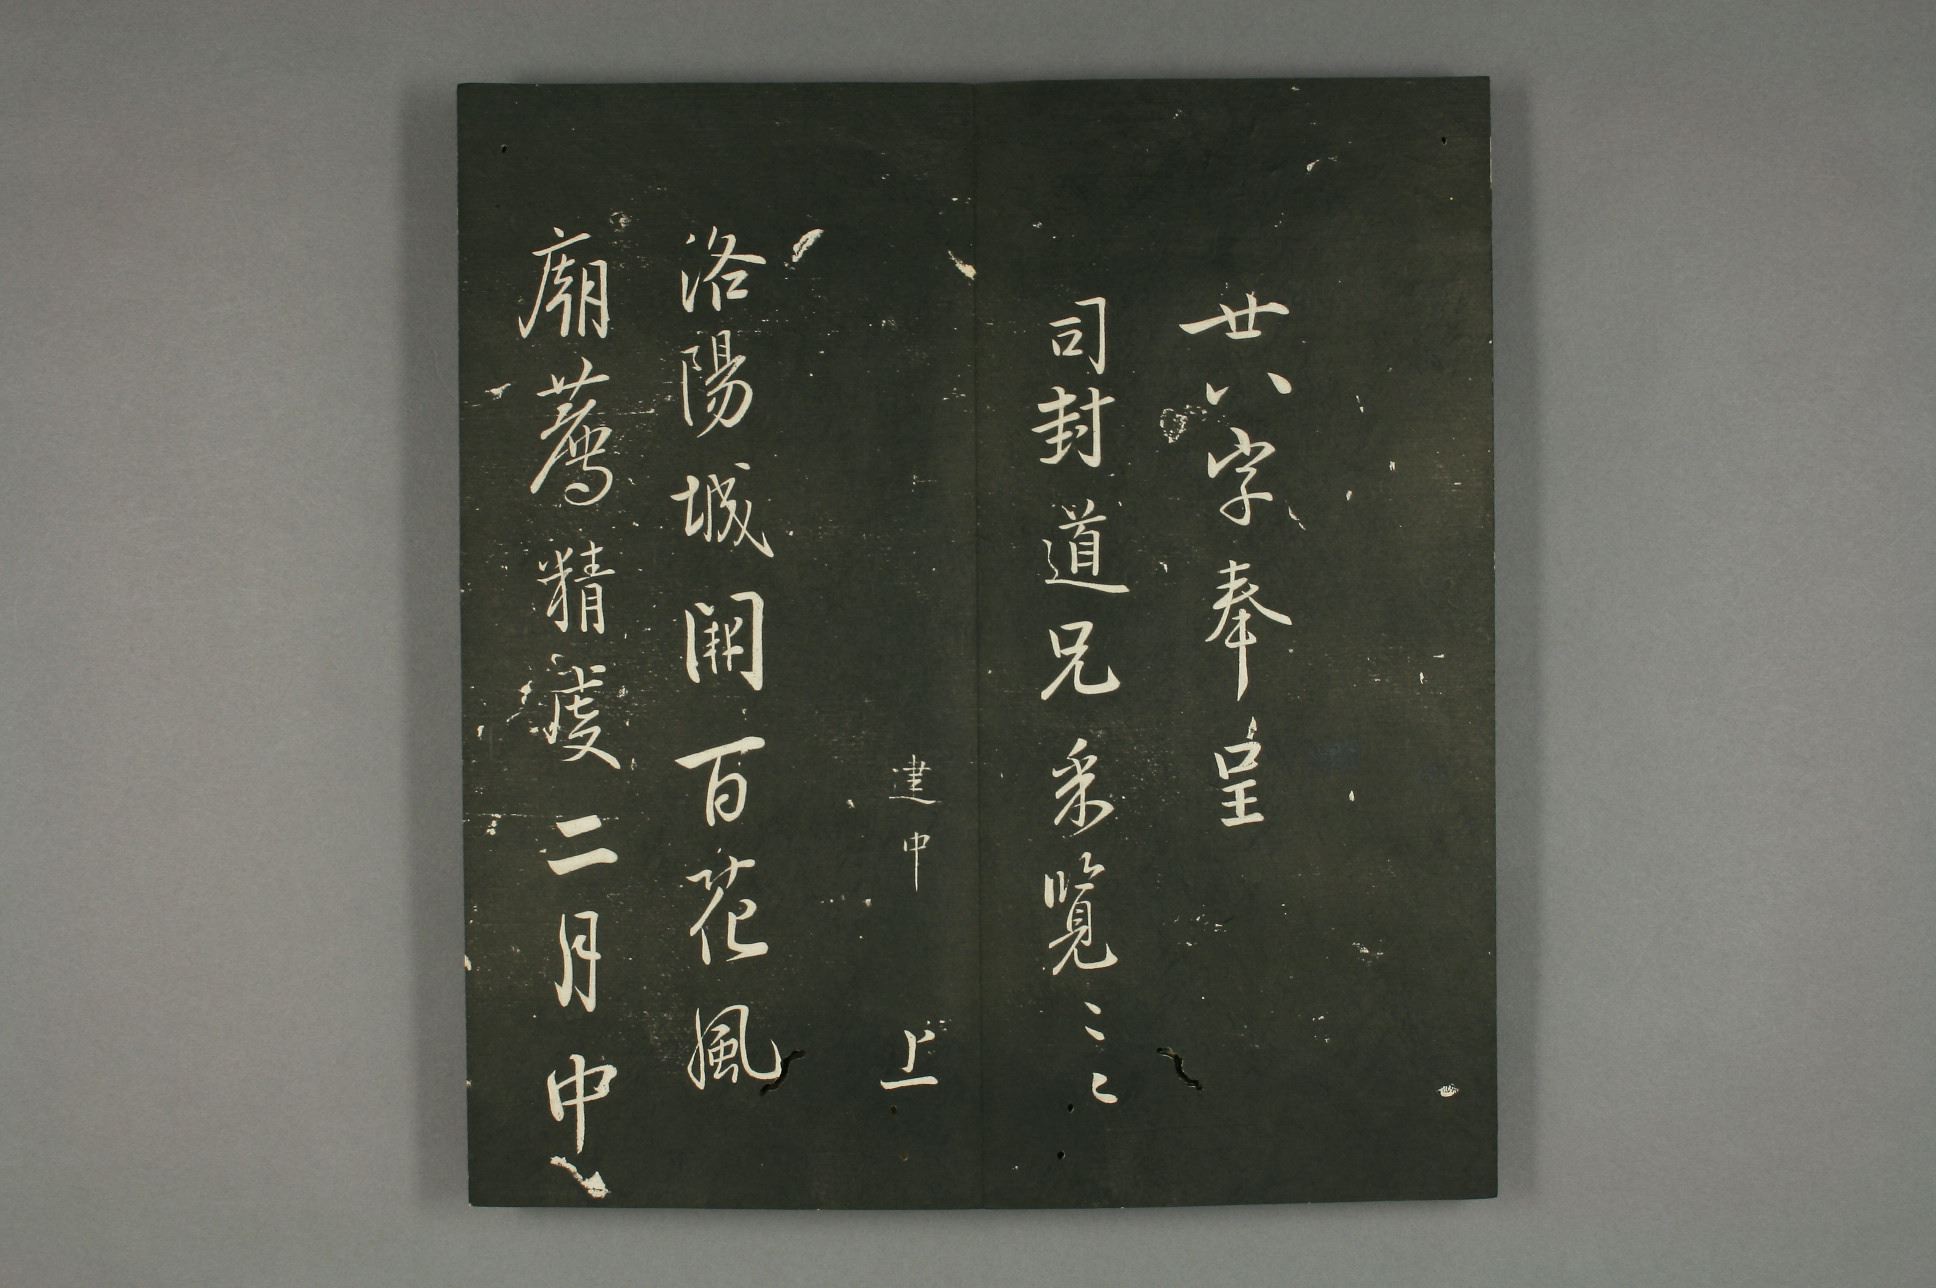 廿八字奉呈
司封道兄采覽
建中 上
洛陽城開百花風
廟薦精虔二月中